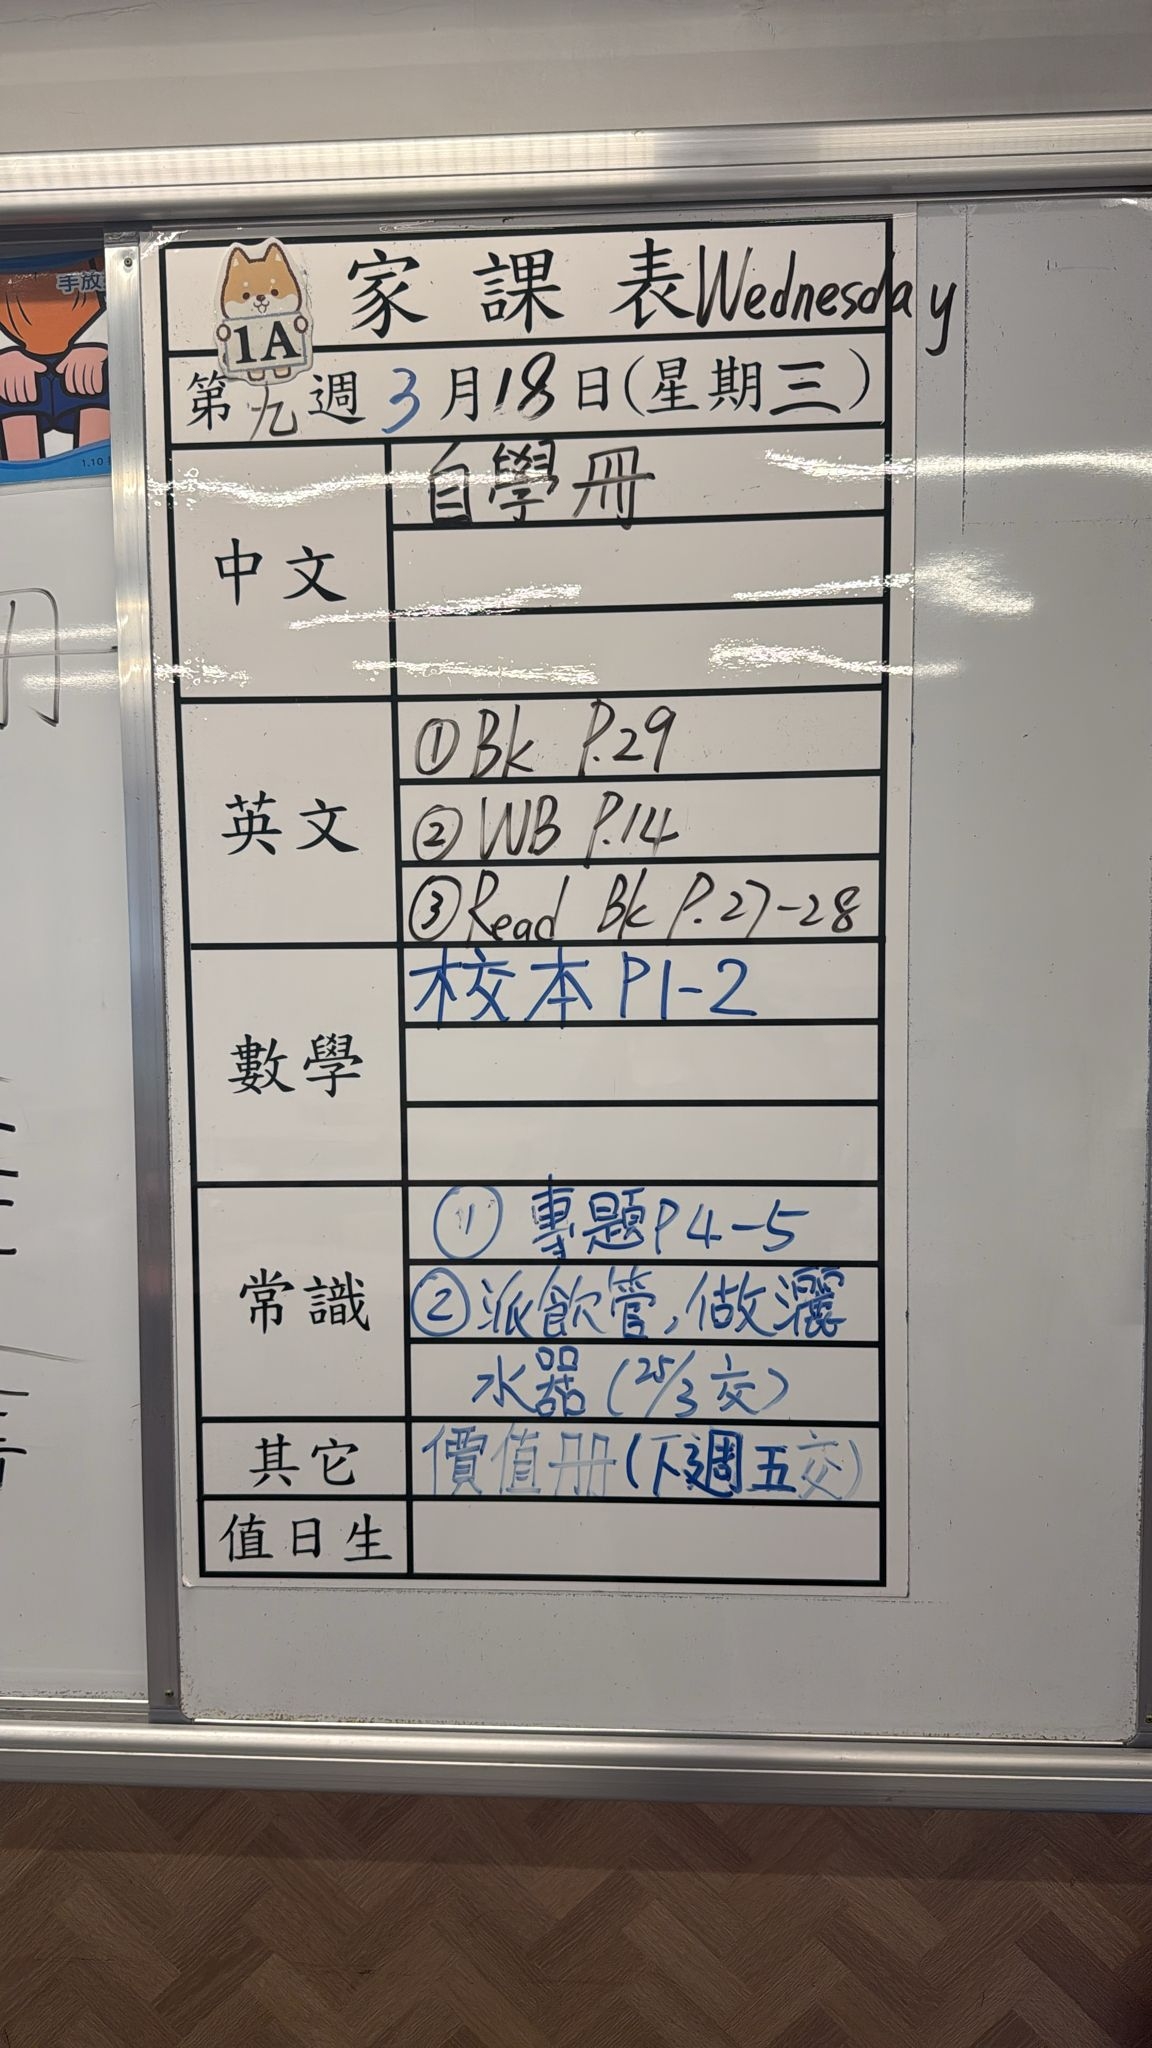 家課表 Wednesday
1A
第九週 3月18日(星期三)
中文
自學冊
英文
①Bk P.29
②WB P.14
③Read Bk P.27-28
數學
校本 P1-2
常識
① 專題P4-5
②派飲管,做灑
水器(25/3交)
其它
價值册(下週五交)
值日生
手放
1.10